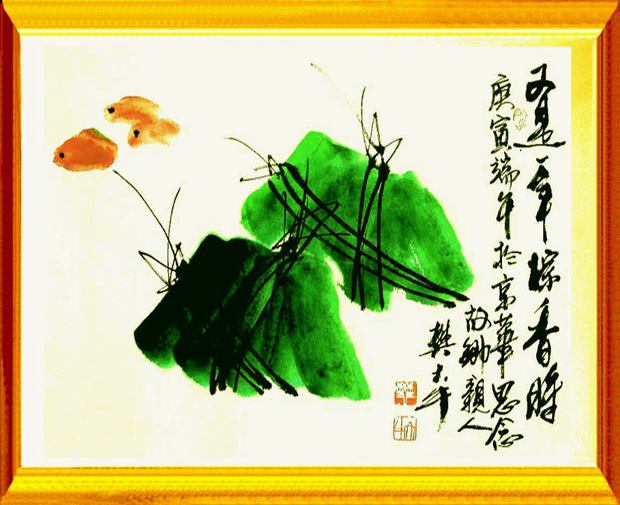 又是一年粽香時
庚寅端午於京華思念
故鄉親人
樊大午